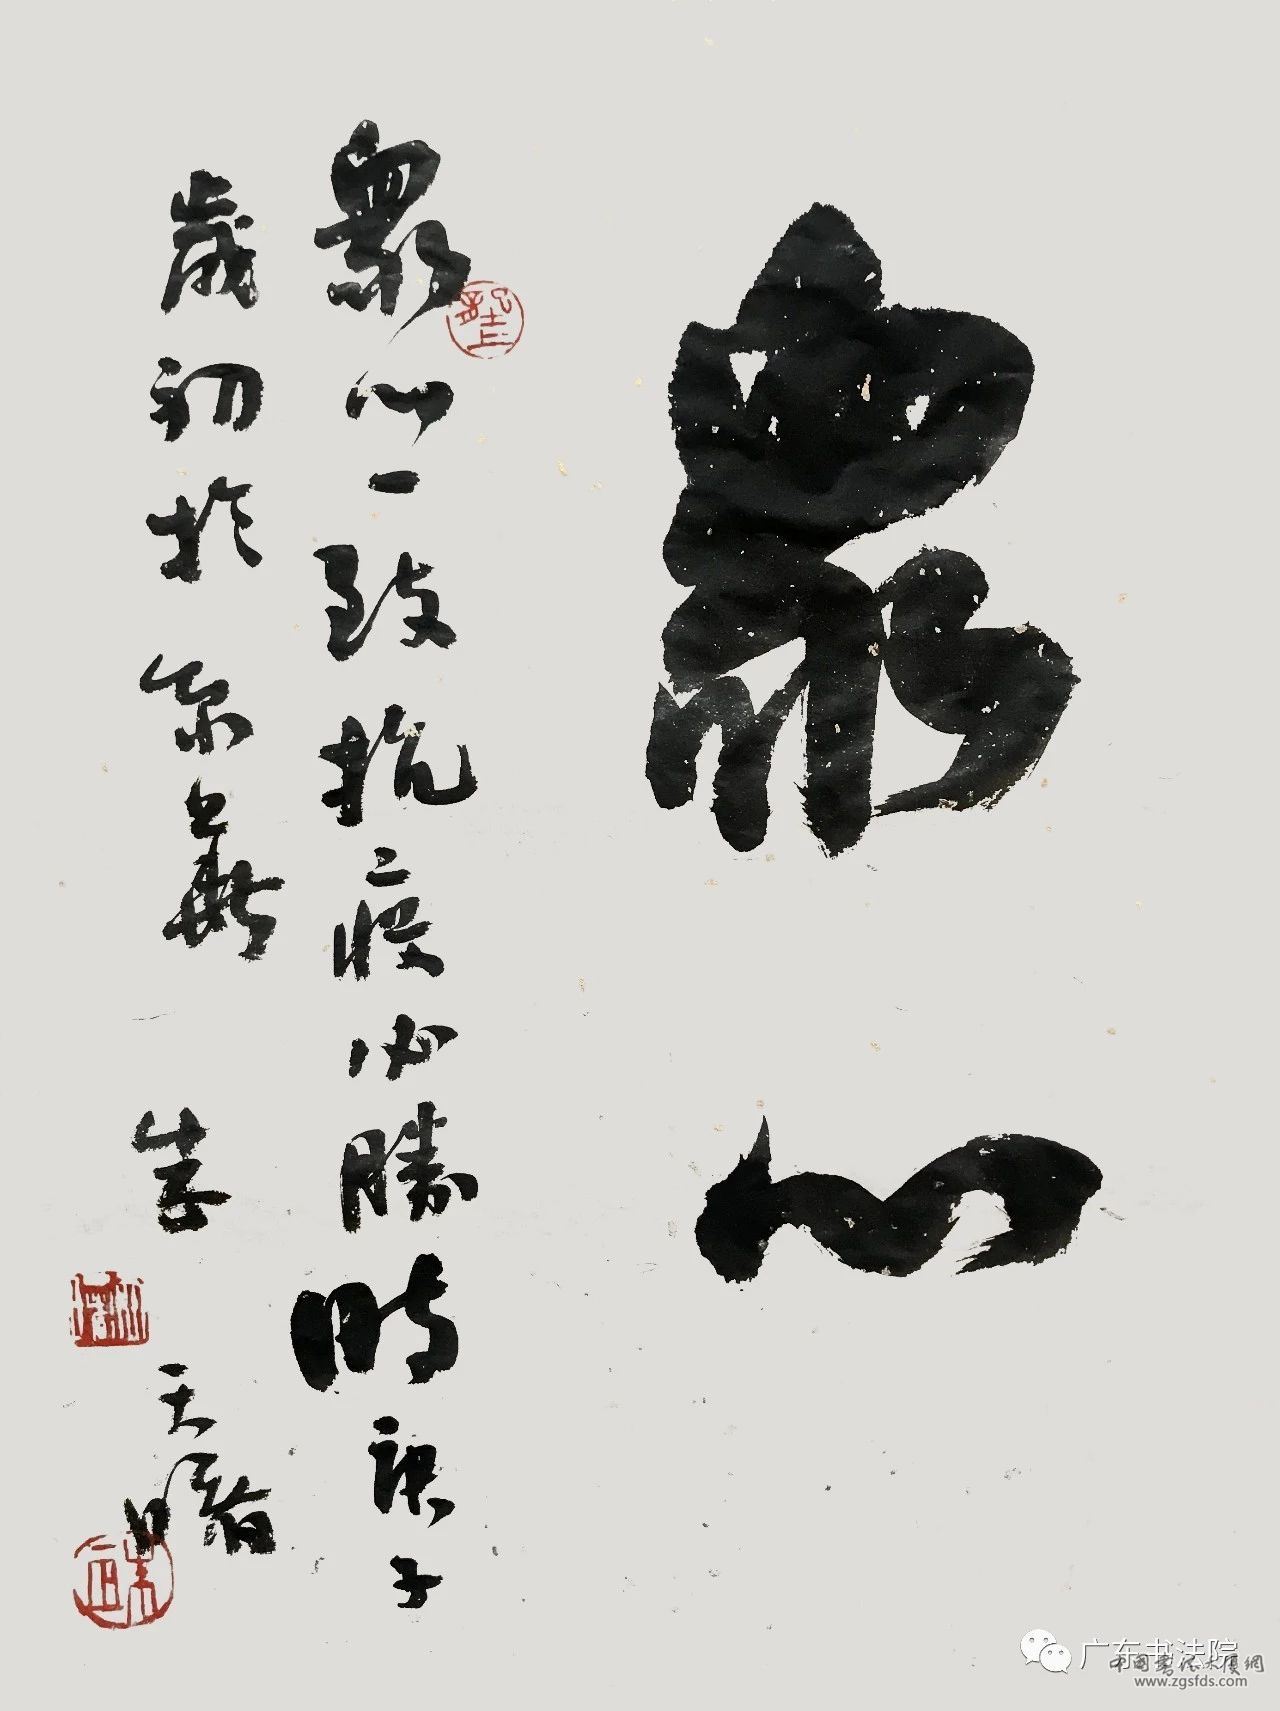 眾心
眾心一致抗疫必勝時庚子
歲初於京華 朱
天曙
广东书法院
中国书法大厦網
www.zgsfds.com